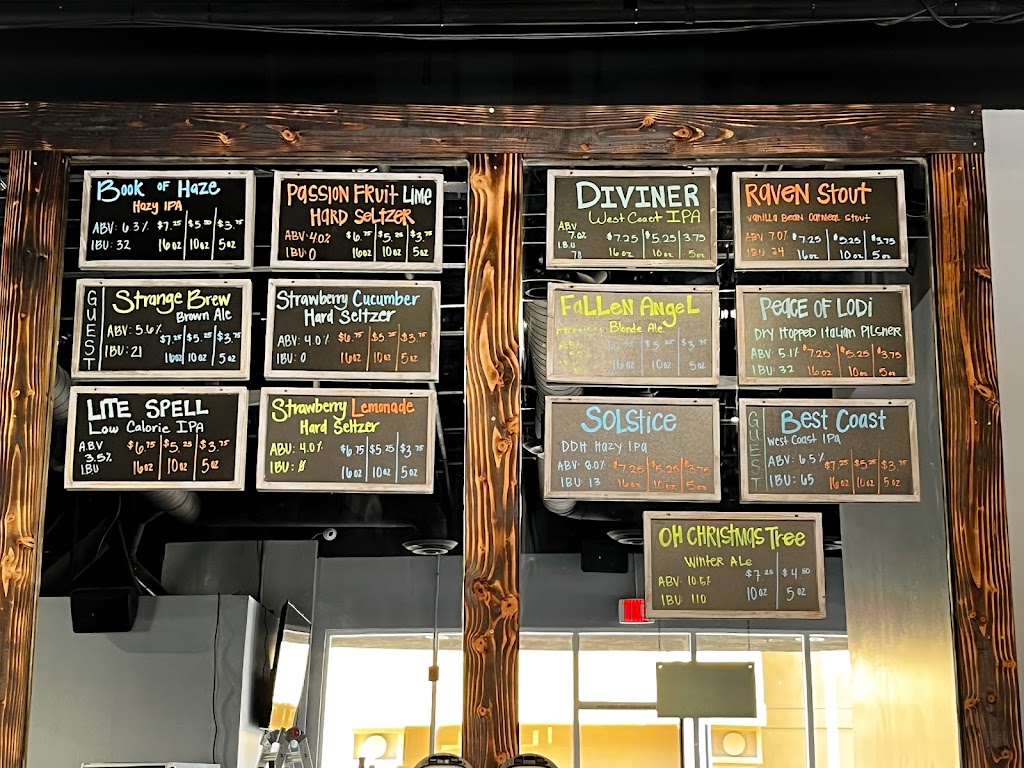 Book of Haze
Hazy IPA
ABV: 6.3% $7.25 $5.25 $3.75
IBU: 32 16oz 10oz 5oz
Passion Fruit Lime
Hard Seltzer
ABV: 4.0% $6.75 $5.25 $3.75
IBU: 0 16oz 10oz 5oz
GUEST
Strange Brew
Brown Ale
ABV: 5.6% $7.25 $5.25 $3.75
IBU: 21 16oz 10oz 5oz
Strawberry Cucumber
Hard Seltzer
ABV: 4.0% $6.75 $5.25 $3.75
IBU: 0 16oz 10oz 5oz
Lite Spell
Low Calorie IPA
A.B.V
3.5% $6.75 $5.25 $3.75
I.B.U 16oz 10oz 5oz
Strawberry Lemonade
Hard Seltzer
ABV: 4.0% $6.75 $5.25 $3.75
IBU: 16oz 10oz 5oz
Diviner
West Coast IPA
ABV
7.0% $7.25 $5.25 3.75
I.B.U
78 16oz 10oz 5oz
Raven Stout
Vanilla Bean Oatmeal Stout
ABV 7.0% $7.25 $5.25 $3.75
IBU 24 16oz 10oz 5oz
Fallen Angel
Blonde Ale
$5.25 $3.75
16oz 10oz 5oz
Peace of Lodi
Dry Hopped Italian Pilsner
ABV 5.1% $7.25 $5.25 $3.75
IBU 32 16oz 10oz 5oz
Solstice
DDH Hazy IPA
ABV: 8.0% $7.25 $5.25 $3.75
IBU: 13 16oz 10oz 5oz
GUEST
Best Coast
West Coast IPA
ABV: 6.5% $7.25 $5.25 $3.75
IBU: 65 16oz 10oz 5oz
Oh Christmas Tree
Winter Ale
ABV: 10.5% $7.25 $4.50
IBU: 110 10oz 5oz